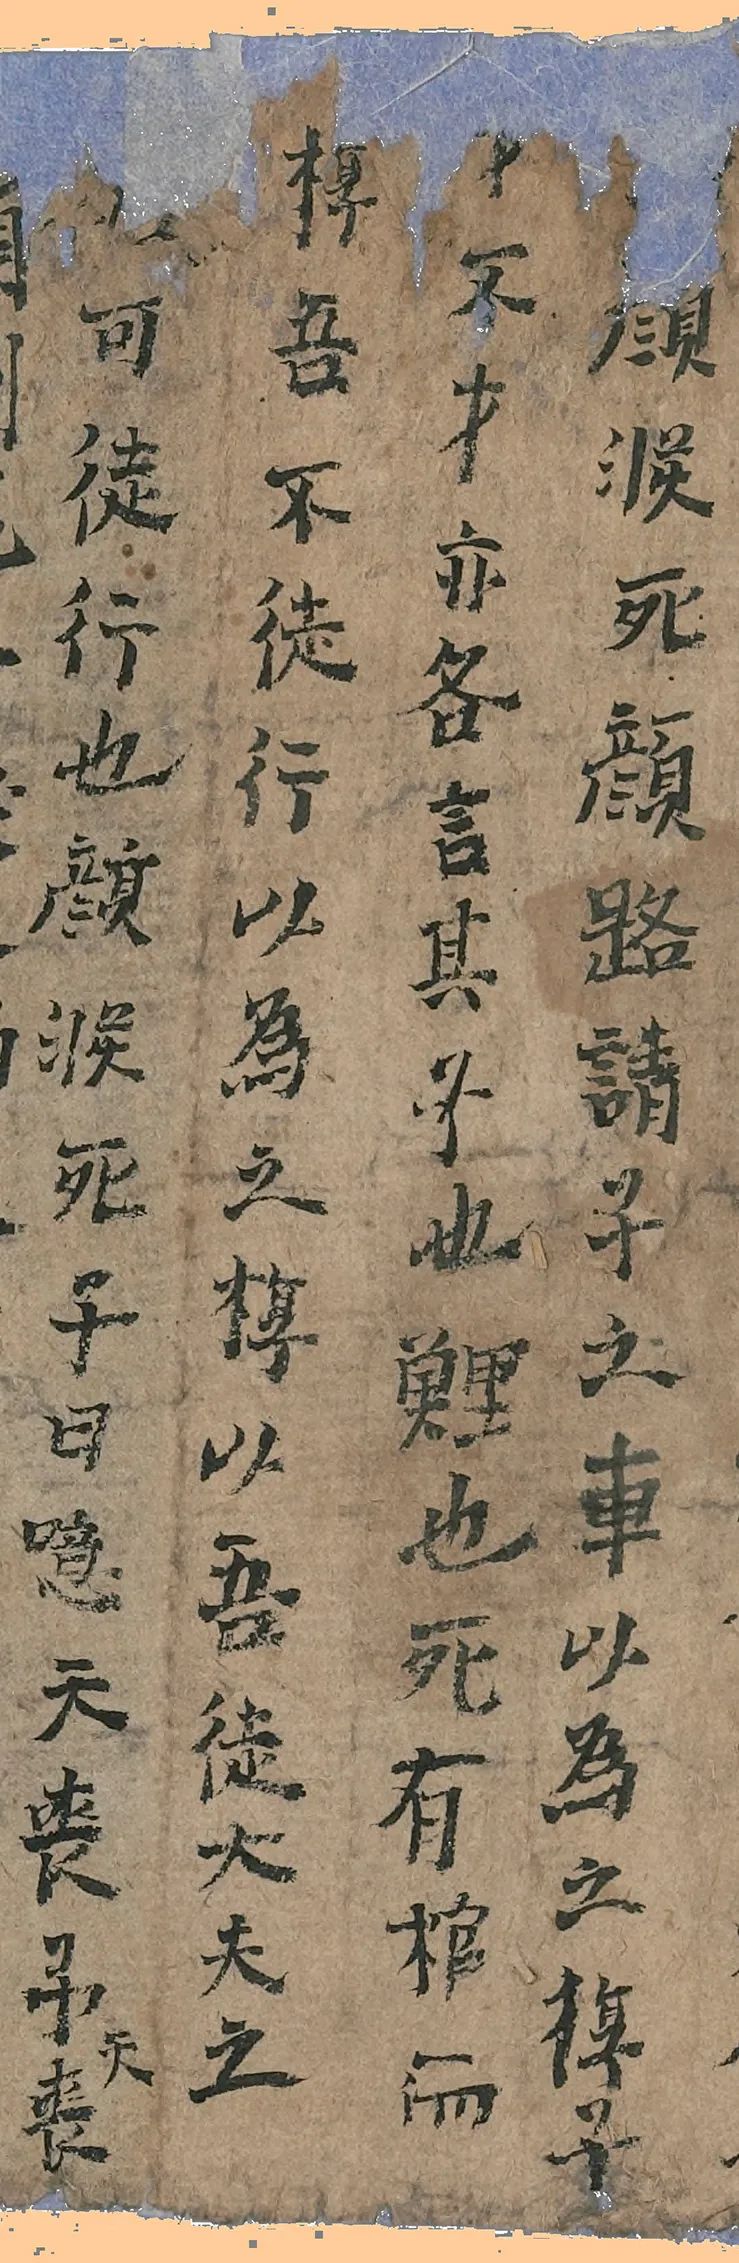 顏淵死顏路請子之車以為之椁子
才不才亦各言其子也鯉也死有棺而
椁吾不徒行以為之椁以吾徒大夫之
可徒行也顏淵死子曰噫天喪予天喪